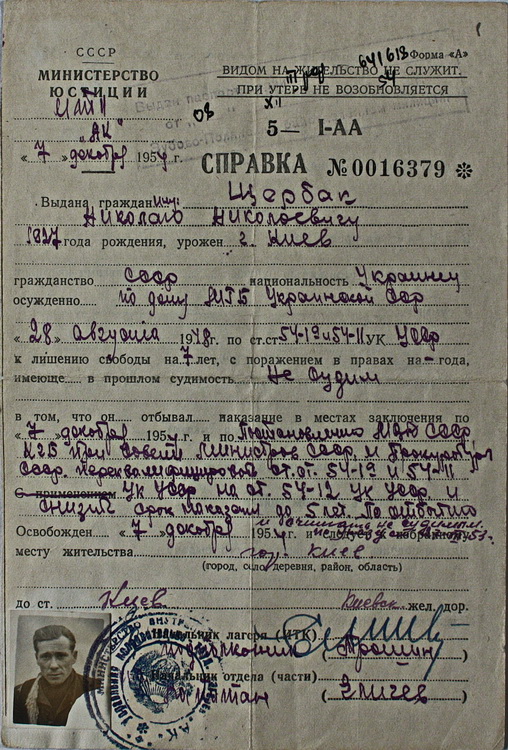 СССР
МИНИСТЕРСТВО
ЮСТИЦИИ
ИТЛ
"АК"
„ 7 " декабря 1954 г.
641618 Форма «А»
ВИДОМ НА ЖИТЕЛЬСТВО НЕ СЛУЖИТ.
ПРИ УТЕРЕ НЕ ВОЗОБНОВЛЯЕТСЯ
08 XII 54
5— I-АА
СПРАВКА №0016379 ※
Выдана граждан ину Щербак
Николаю Николаевичу
1927 года рождения, урожен г. Киев
гражданство СССР национальность Украинец
осужденно по делу МГБ Украинской ССР
„ 28 " августа 1948 г. по ст.ст. 54-1а и 54-11 УК УССР
к лишению свободы на 7 лет, с поражением в правах на - года,
имеюще в прошлом судимость Не судим
в том, что он отбывал наказание в местах заключения по
„ 7 " декабря 1954 г. и по Постановлению
КГБ при Совете Министров СССР и Прокуратуры
СССР. переквалифицировать ст.ст. 54-1а и 54-11
с применением УК УССР на ст. 54-12 УК УССР и
снизить срок наказания до 5 лет. По отбытию
и считать не судимым.
Освобожден „ 7 " декабря 1954 г. и следует к избранному
месту жительства гор. Киев
(город, село, деревня, район, область)
до ст. Киев Киевск жел. дор.
Начальник лагеря (ИТК)
подполковник (Трошин)
Начальник отдела (части)
капитан (Зличев)